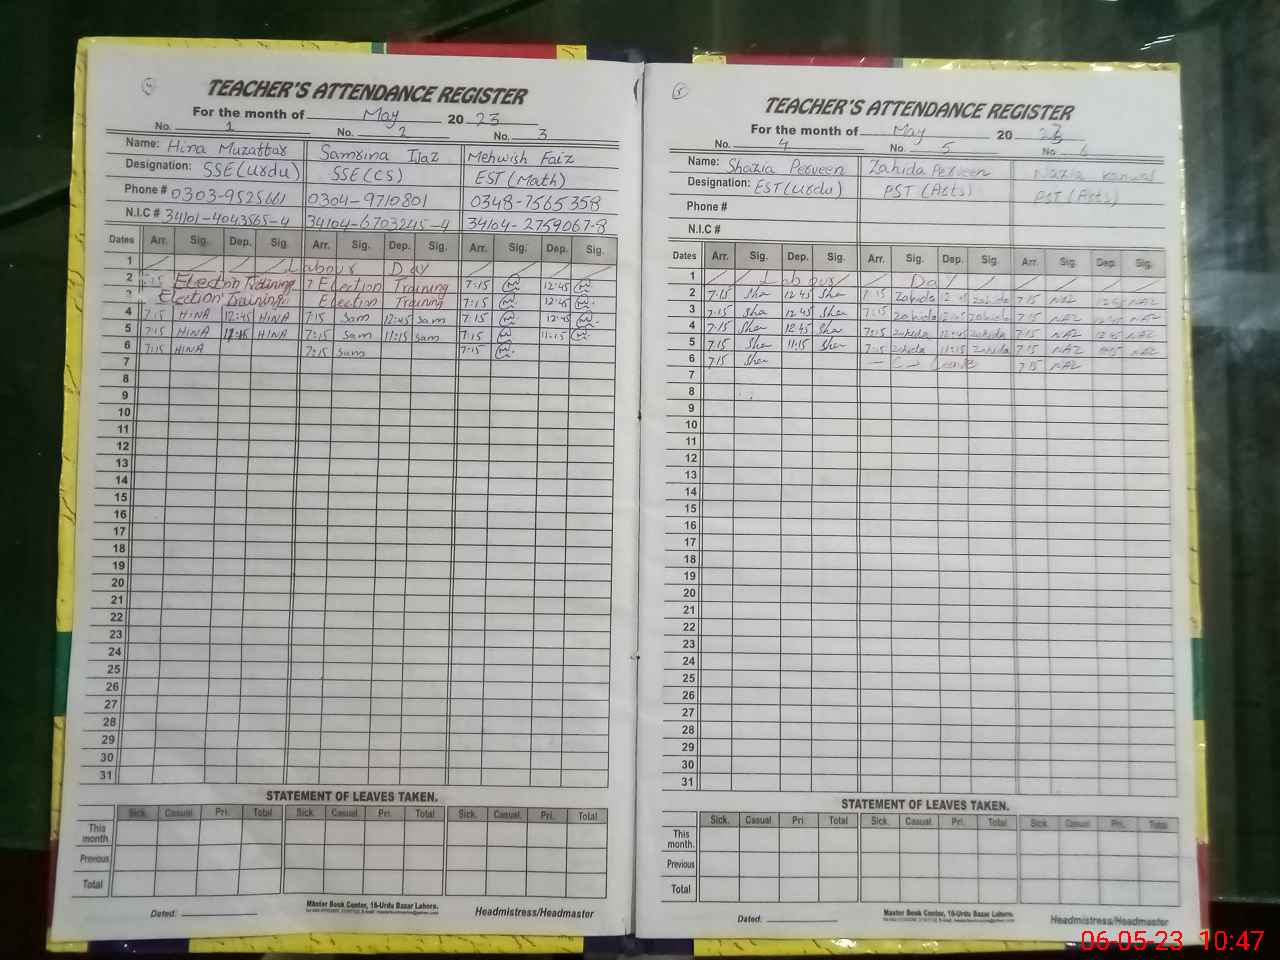 4
TEACHER'S ATTENDANCE REGISTER
For the month of May 2023
No. 1 No. 2 No. 3
Name: Hina Muzaffar Samrina Ijaz Mehwish Faiz
Designation: SSE(Urdu) SSE(CS) EST(Math)
Phone # 0304-9710801 0348-7565358
N.I.C # 34101-4043565-4 34104-6703245-4 34104-2759067-8
Dates Arr. Sig. Dep. Sig. Arr. Sig. Dep. Sig. Arr. Sig. Dep. Sig.
1 Labour Day
2 Election Training Election Training 7:15 12:45
3 Election Training Election Training 7:15 12:45
4 7:15 HINA 12:45 HINA 7:15 Sam 12:45 Sam 7:15 12:45
5 7:15 HINA HINA 7:15 Sam 11:15 Sam 7:15 11:15
6 7:15 HINA 7:15 Sam 7:15
7
8
9
10
11
12
13
14
15
16
17
18
19
20
21
22
23
24
25
26
27
28
29
30
31
STATEMENT OF LEAVES TAKEN.
Sick. Casual. Pri. Total Sick. Casual. Pri. Total Sick. Casual. Pri. Total
This month
Previous
Total
Dated:
Master Book Center, 16-Urdu Bazar Lahore.
Headmistress/Headmaster
5
TEACHER'S ATTENDANCE REGISTER
For the month of May 2023
No. 4 No. 5 No. 6
Name: Shazia Perveen Zahida Perveen Nazia Kanwal
Designation: EST(Urdu) PST(Arts) PST(Arts)
Phone #
N.I.C #
Dates Arr. Sig. Dep. Sig. Arr. Sig. Dep. Sig. Arr. Sig. Dep. Sig.
1 Labour Day
2 7:15 Sha 12:45 Sha 7:15 Zahida 12:45 Zahida 7:15 NAZ 12:45 NAZ
3 7:15 Sha 12:45 Sha 7:15 Zahida 12:45 Zahida 7:15 NAZ 12:45 NAZ
4 7:15 Sha 12:45 Sha 7:15 Zahida 12:45 Zahida 7:15 NAZ 12:45 NAZ
5 7:15 Sha 11:15 Sha 7:15 Zahida 11:15 Zahida 7:15 NAZ NAZ
6 7:15 Sha — C — Leave 7:15 NAZ
7
8
9
10
11
12
13
14
15
16
17
18
19
20
21
22
23
24
25
26
27
28
29
30
31
STATEMENT OF LEAVES TAKEN.
Sick. Casual. Pri. Total Sick. Casual. Pri. Total Sick. Casual. Pri. Total
This month.
Previous
Total
Dated:
Master Book Center, 16-Urdu Bazar Lahore.
Headmistress/Headmaster
06-05-23 10:47